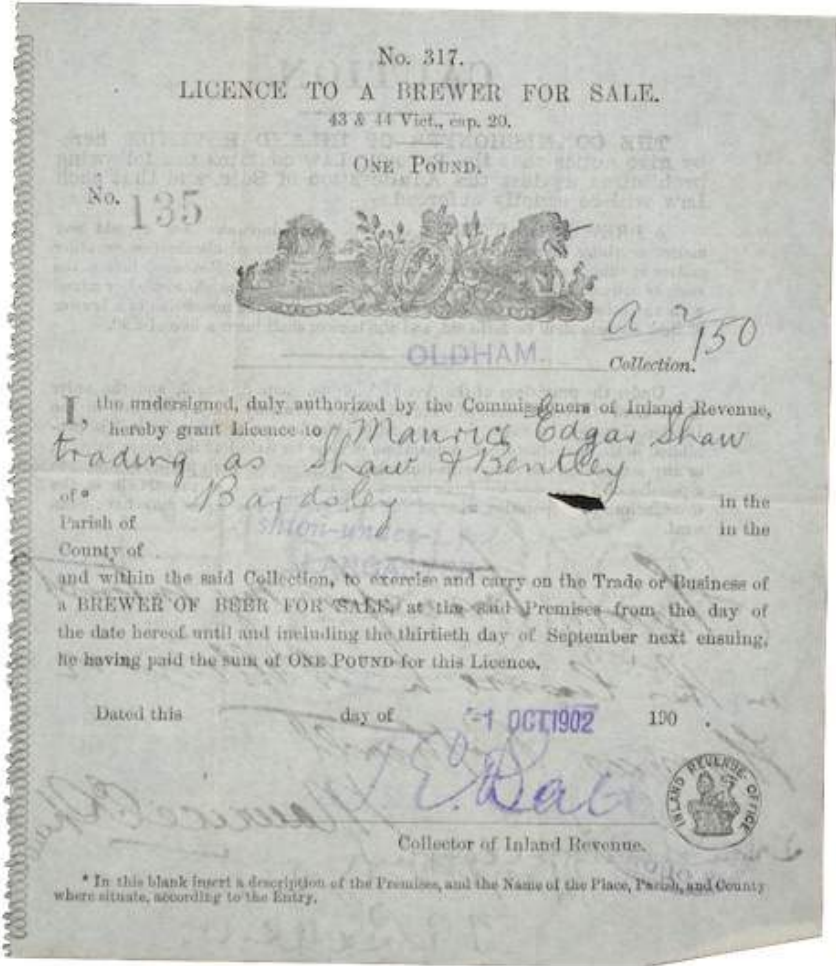 No. 317.
LICENCE TO A BREWER FOR SALE.
43 & 44 Vict., cap. 20.
ONE POUND.
No. 135
a. 2/150
OLDHAM. Collection.
I, the undersigned, duly authorized by the Commissioners of Inland Revenue,
hereby grant Licence to Maurice Edgar Shaw
trading as Shaw & Bentley
of* Bardsley in the
Parish of in the
County of
and within the said Collection, to exercise and carry on the Trade or Business of
a BREWER OF BEER FOR SALE, at the said Premises from the day of
the date hereof until and including the thirtieth day of September next ensuing,
he having paid the sum of ONE POUND for this Licence.
Dated this day of -1 OCT 1902 190 .
Collector of Inland Revenue.
INLAND REVENUE OFFICE
* In this blank insert a description of the Premises, and the Name of the Place, Parish, and County
where situate, according to the Entry.